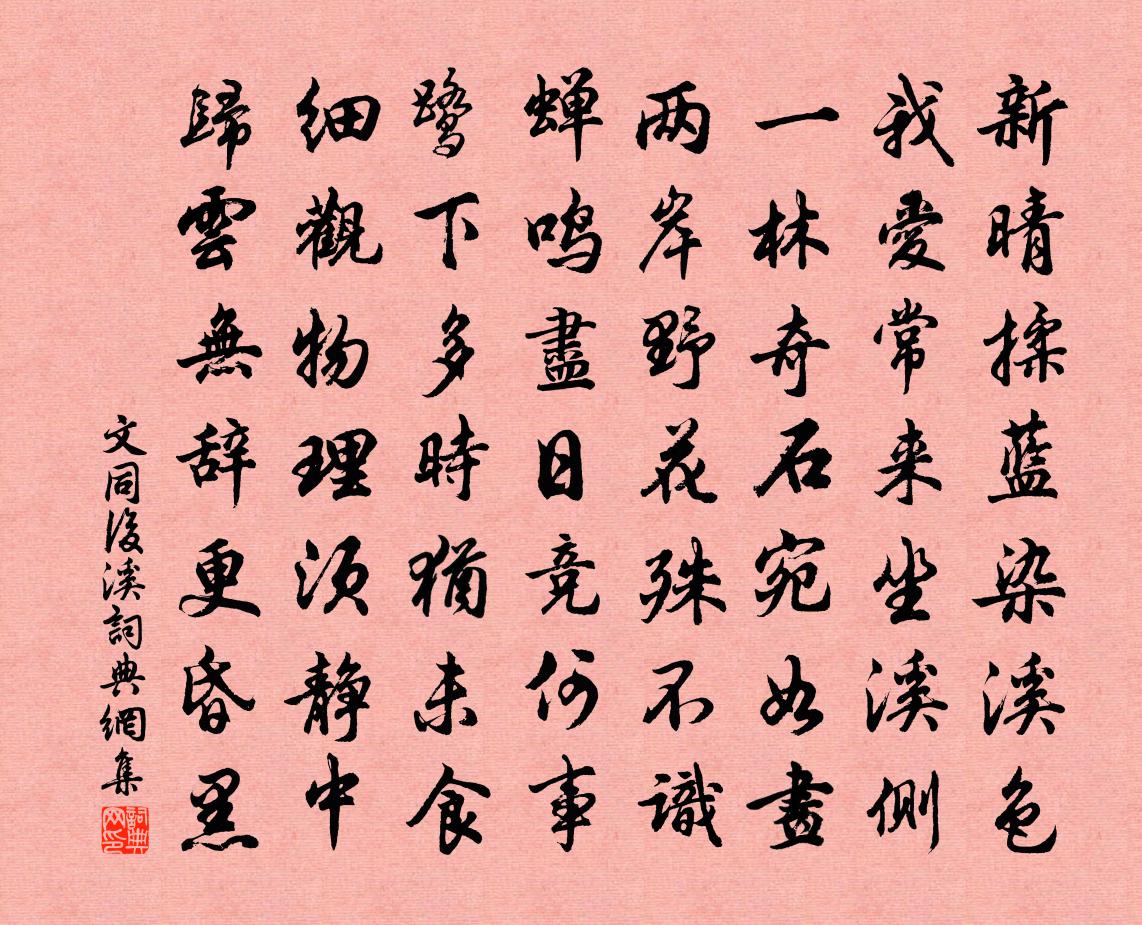 新晴揉蓝染溪色
我愛常来坐溪側
一林奇石宛如畫
两岸野花殊不識
蝉鸣盡日竞何事
鹭下多時猶未食
细觀物理须静中
歸雲無辞更昏黑
文同後溪詞典網集
詞典网印